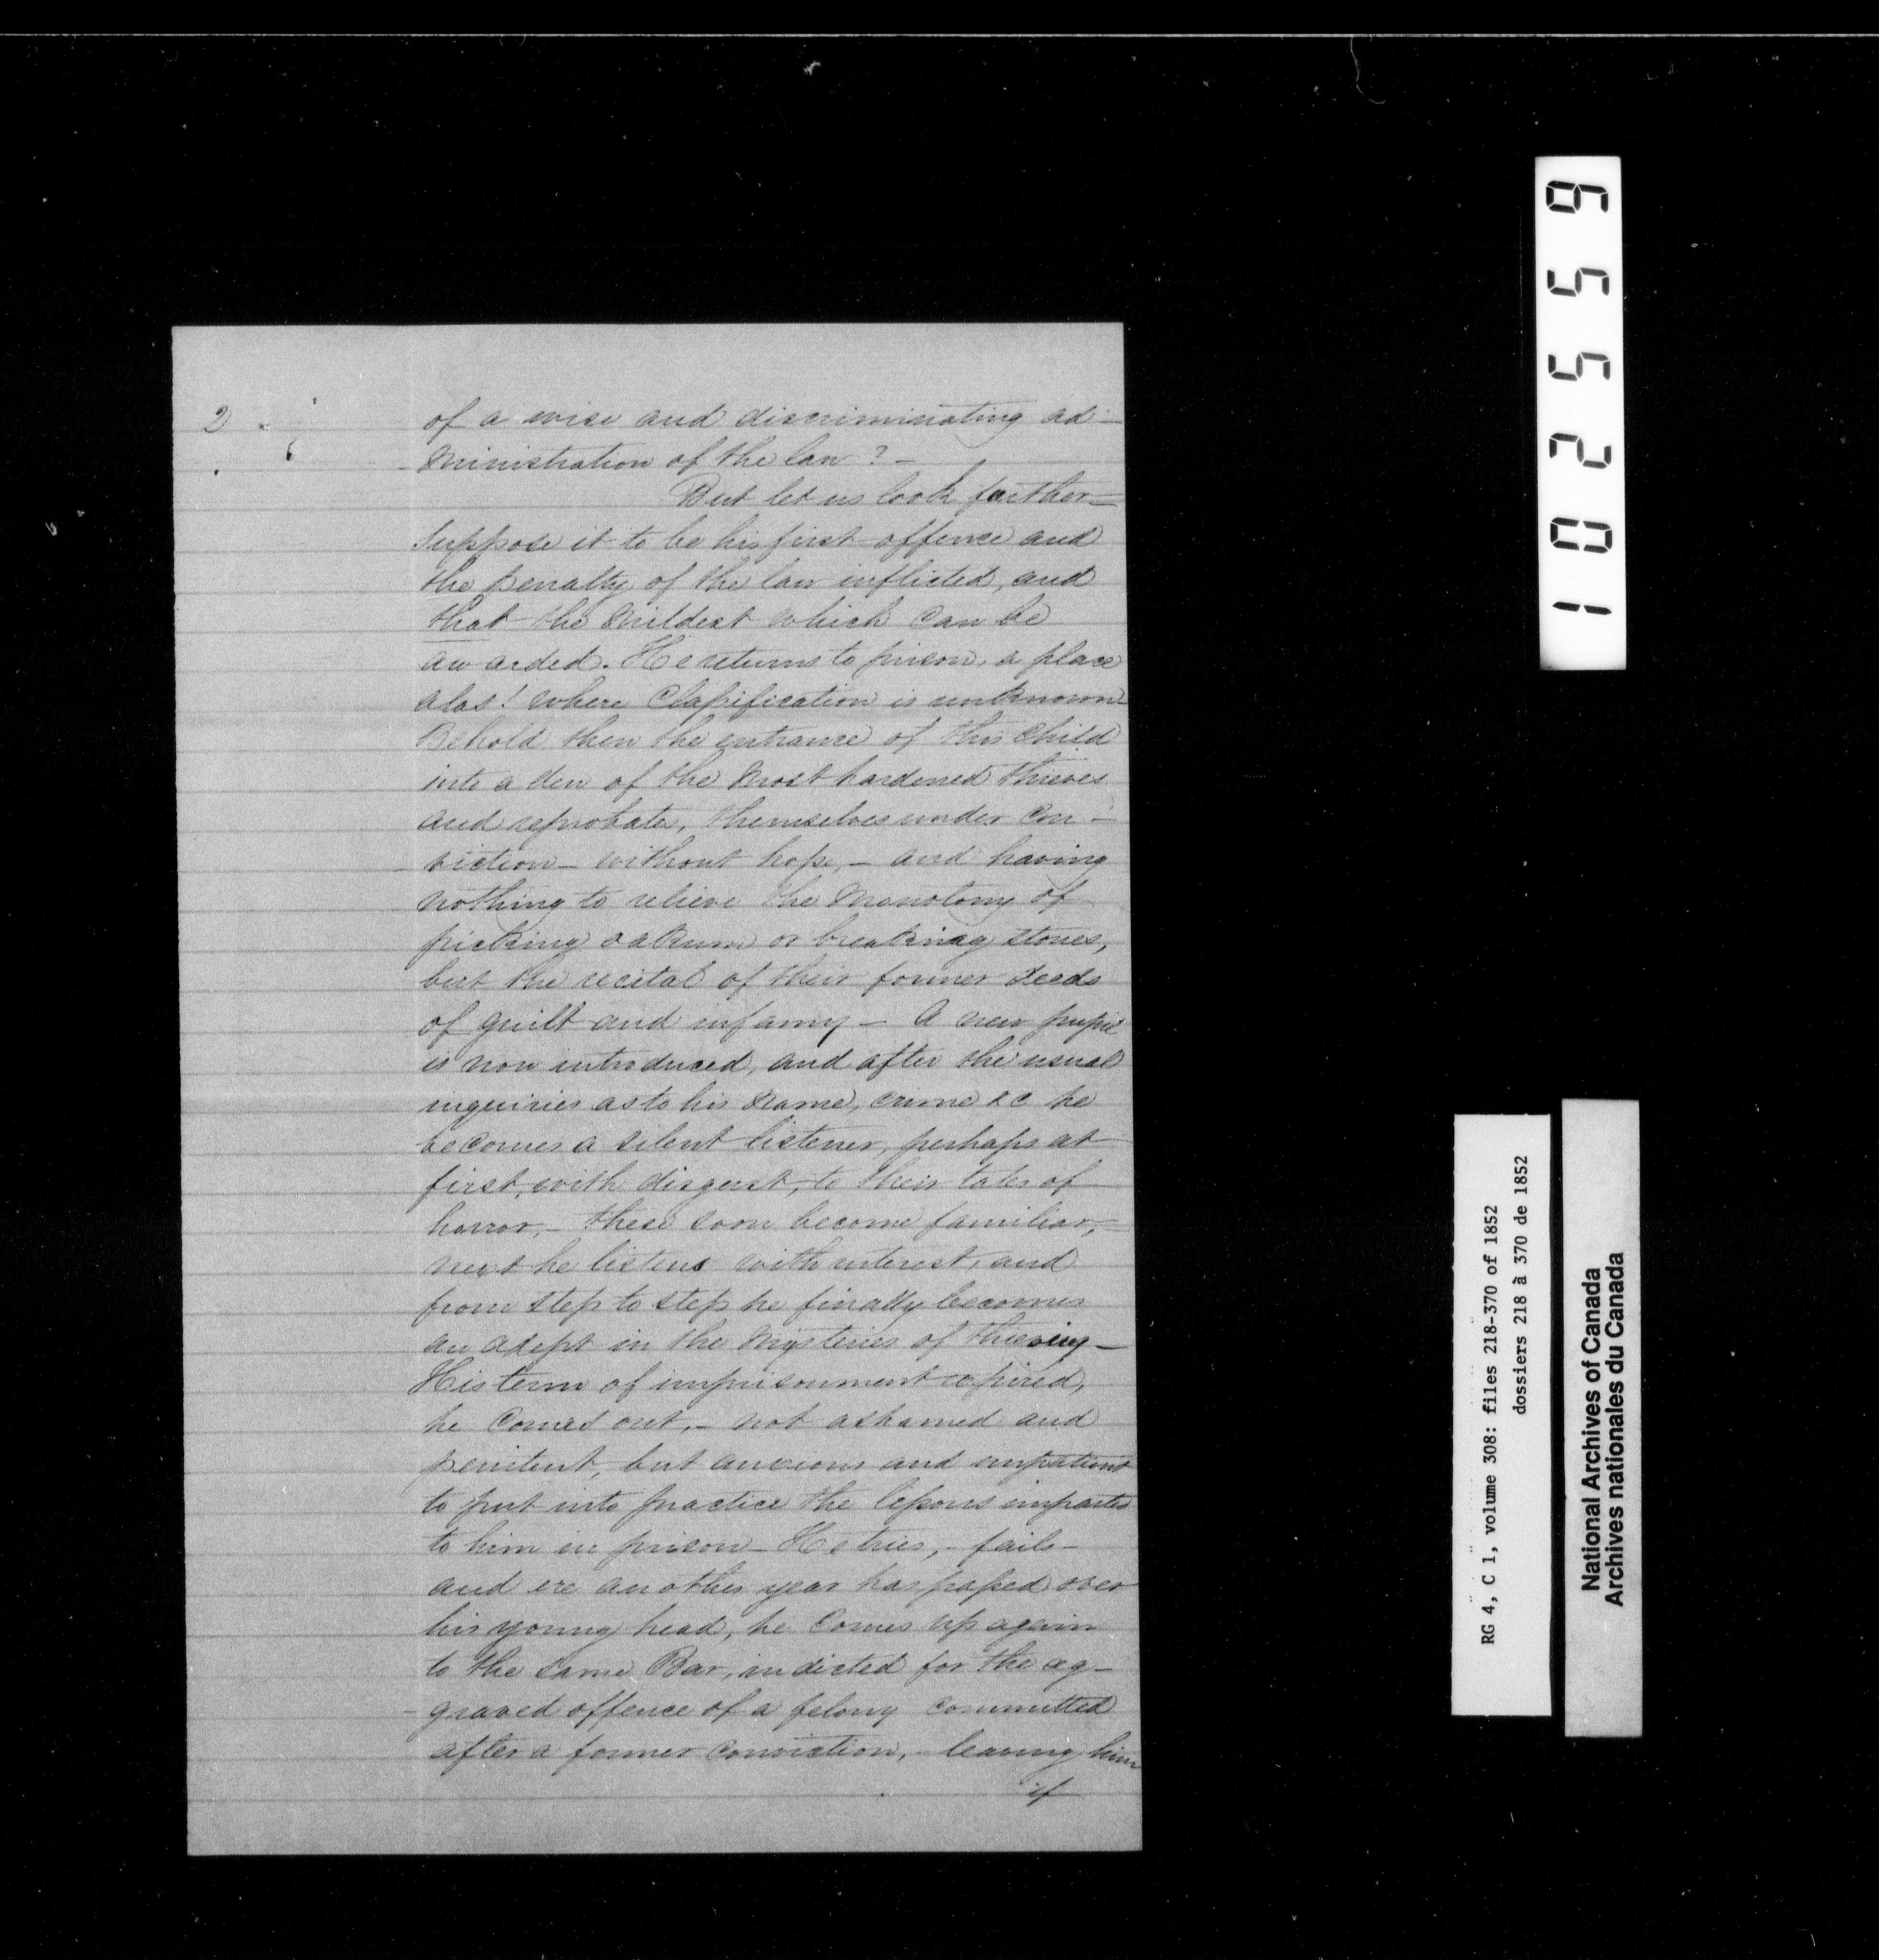 2
of a wise and discriminating ad-
-ministration of the law? -
But let us look further -
Suppose it to be his first offence and
the penalty of the law inflicted, and
that the mildest which can be
awarded. He returns to prison, a place
alas! where Classification is unknown
Behold then the entrance of this Child
into a den of the most hardened thieves
and reprobates, themselves under Con-
-viction - without hope, - and having
nothing to relieve the monotony of
picking oakum or breaking stones,
but the recital of their former deeds
of guilt and infamy - A new pupil
is now introduced, and after the usual
inquiries as to his name, crime &c he
becomes a silent listener, perhaps at
first, with disgust, to their tales of
horror, - these soon become familiar, -
next he listens with interest, and
from step to step he finally becomes
an adept in the mysteries of thieving -
His term of imprisonment expired,
he comes out, - not ashamed and
penitent, but anxious and impatient
to put into practice the lessons imparted
to him in prison - He tries, - fails -
and ere another year has passed over
his young head, he Comes up again
to the same Bar, indicted for the ag-
-graved offence of a felony committed
after a former conviction, - leaving him
if
102559
RG 4, C 1, volume 308: files 218-370 of 1852
dossiers 218 à 370 de 1852
National Archives of Canada
Archives nationales du Canada